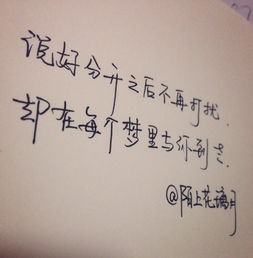 说好分开之后不再打扰.
却在每个梦里与你到老.
@陌上花漓月